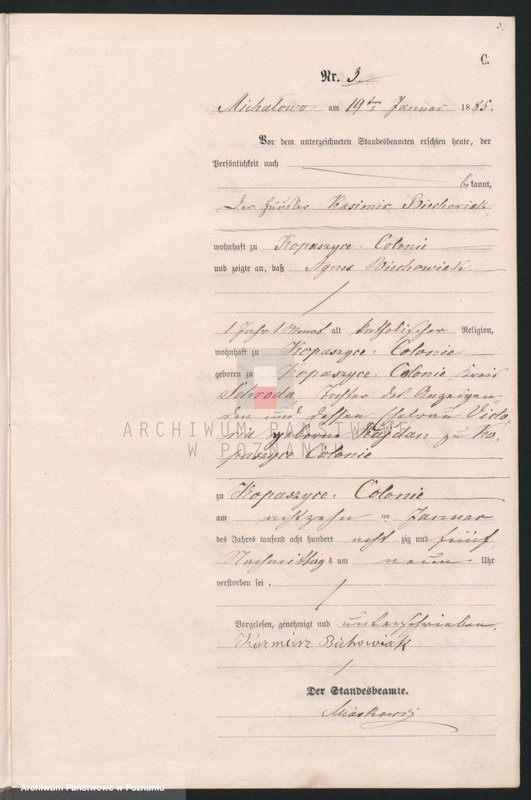 3.
C.
Nr. 3.
Michalowo am 19ten Januar 1885.
Vor dem unterzeichneten Standesbeamten erschien heute, der
Persönlichkeit nach
bekannt,
Der Häusler Kasimir Biechowiak,
wohnhaft zu Kopaszyce-Colonie
und zeigte an, daß Agnes Biechowiak.
1 Jahr 1 Monat alt katholischer Religion,
wohnhaft zu Kopaszyce-Colonie
geboren zu Kopaszyce-Colonie, Kreis
Schroda, Tochter des Anzeigen-
den und dessen Ehefrau Victo-
ria geborene Kajdan zu Ko-
paszyce Colonie
zu Kopaszyce-Colonie
am achtzehn ten Januar
des Jahres tausend acht hundert acht zig und fünf,
Nachmittags um neun Uhr
verstorben sei.
Vorgelesen, genehmigt und unterschrieben.
Kazmirz Bichowiak
Der Standesbeamte.
ARCHIWUM PAŃSTWOWE
W POZNANIU
Archiwum Państwowe w Poznaniu